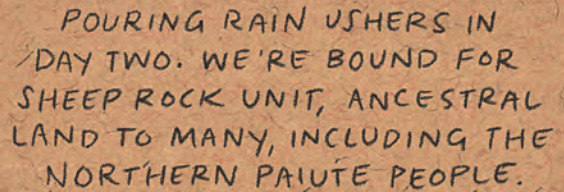 POURING RAIN USHERS IN
DAY TWO. WE'RE BOUND FOR
SHEEP ROCK UNIT, ANCESTRAL
LAND TO MANY, INCLUDING THE
NORTHERN PAIUTE PEOPLE.